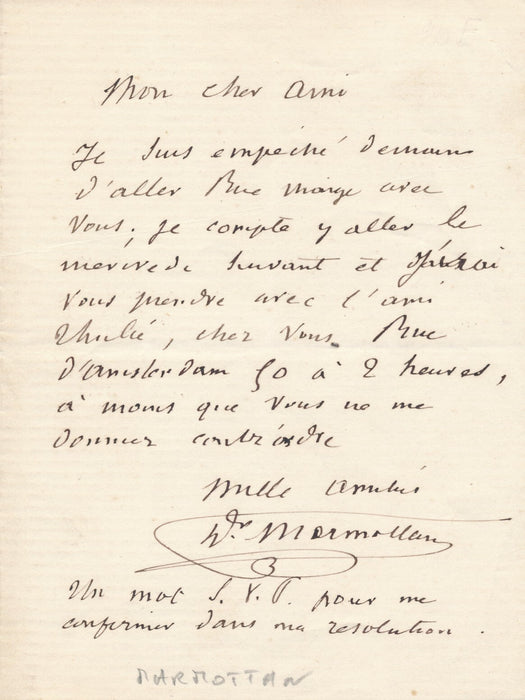 Mon cher ami
Je suis empéché demain
d'aller Rue Monge avec
vous. je compte y aller le
mercredi suivant et j'irai
vous prendre avec l'ami
Thulié, chez vous Rue
d'amsterdam 50 à 2 heures,
à moins que vous ne me
donniez contrordre
Mille amitiés
Dr. Marmottan
Un mot S.V.P. pour me
confirmer dans ma resolution.
MARMOTTAN